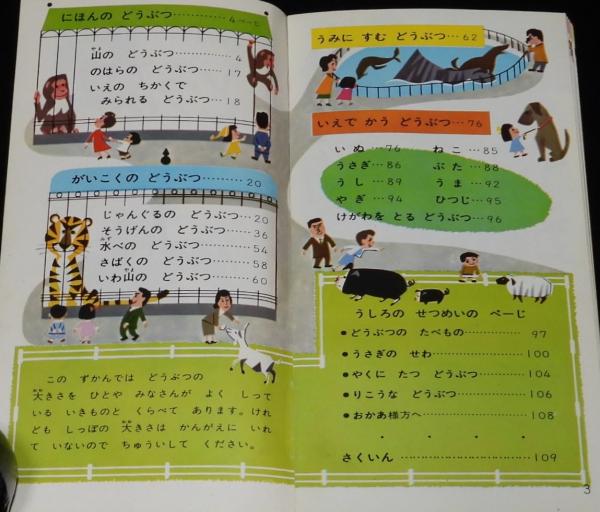 にほんの どうぶつ…………4ぺーじ
山の どうぶつ………4
のはらの どうぶつ……17
いえの ちかくで
みられる どうぶつ…18
がいこくの どうぶつ………20
じゃんぐるの どうぶつ…20
そうげんの どうぶつ……36
水べの どうぶつ…………54
さばくの どうぶつ………58
いわ山の どうぶつ………60
この ずかんでは どうぶつの
大きさを ひとや みなさんが よく しって
いる いきものと くらべて あります。けれ
ども しっぽの 大きさは かんがえに いれ
て いないので ちゅういして ください。
うみに すむ どうぶつ…62
いえで かう どうぶつ…76
いぬ…76 ねこ…85
うさぎ…86 ぶた…88
うし…89 うま…92
やぎ…94 ひつじ…95
けがわを とる どうぶつ…96
うしろの せつめいの ぺーじ
●どうぶつの たべもの………97
●うさぎの せわ………………100
●やくに たつ どうぶつ……104
●りこうな どうぶつ…………106
●おかあ様方へ…………………108
・ ・ ・ ・
さくいん…………………………109
3